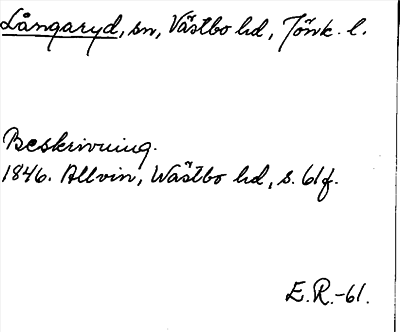 Långaryd, sn, Västbo hd, Jönk. l.
Beskrivning.
1846. Allvin, Wästbo hd, s. 61f.
E.R.-61.